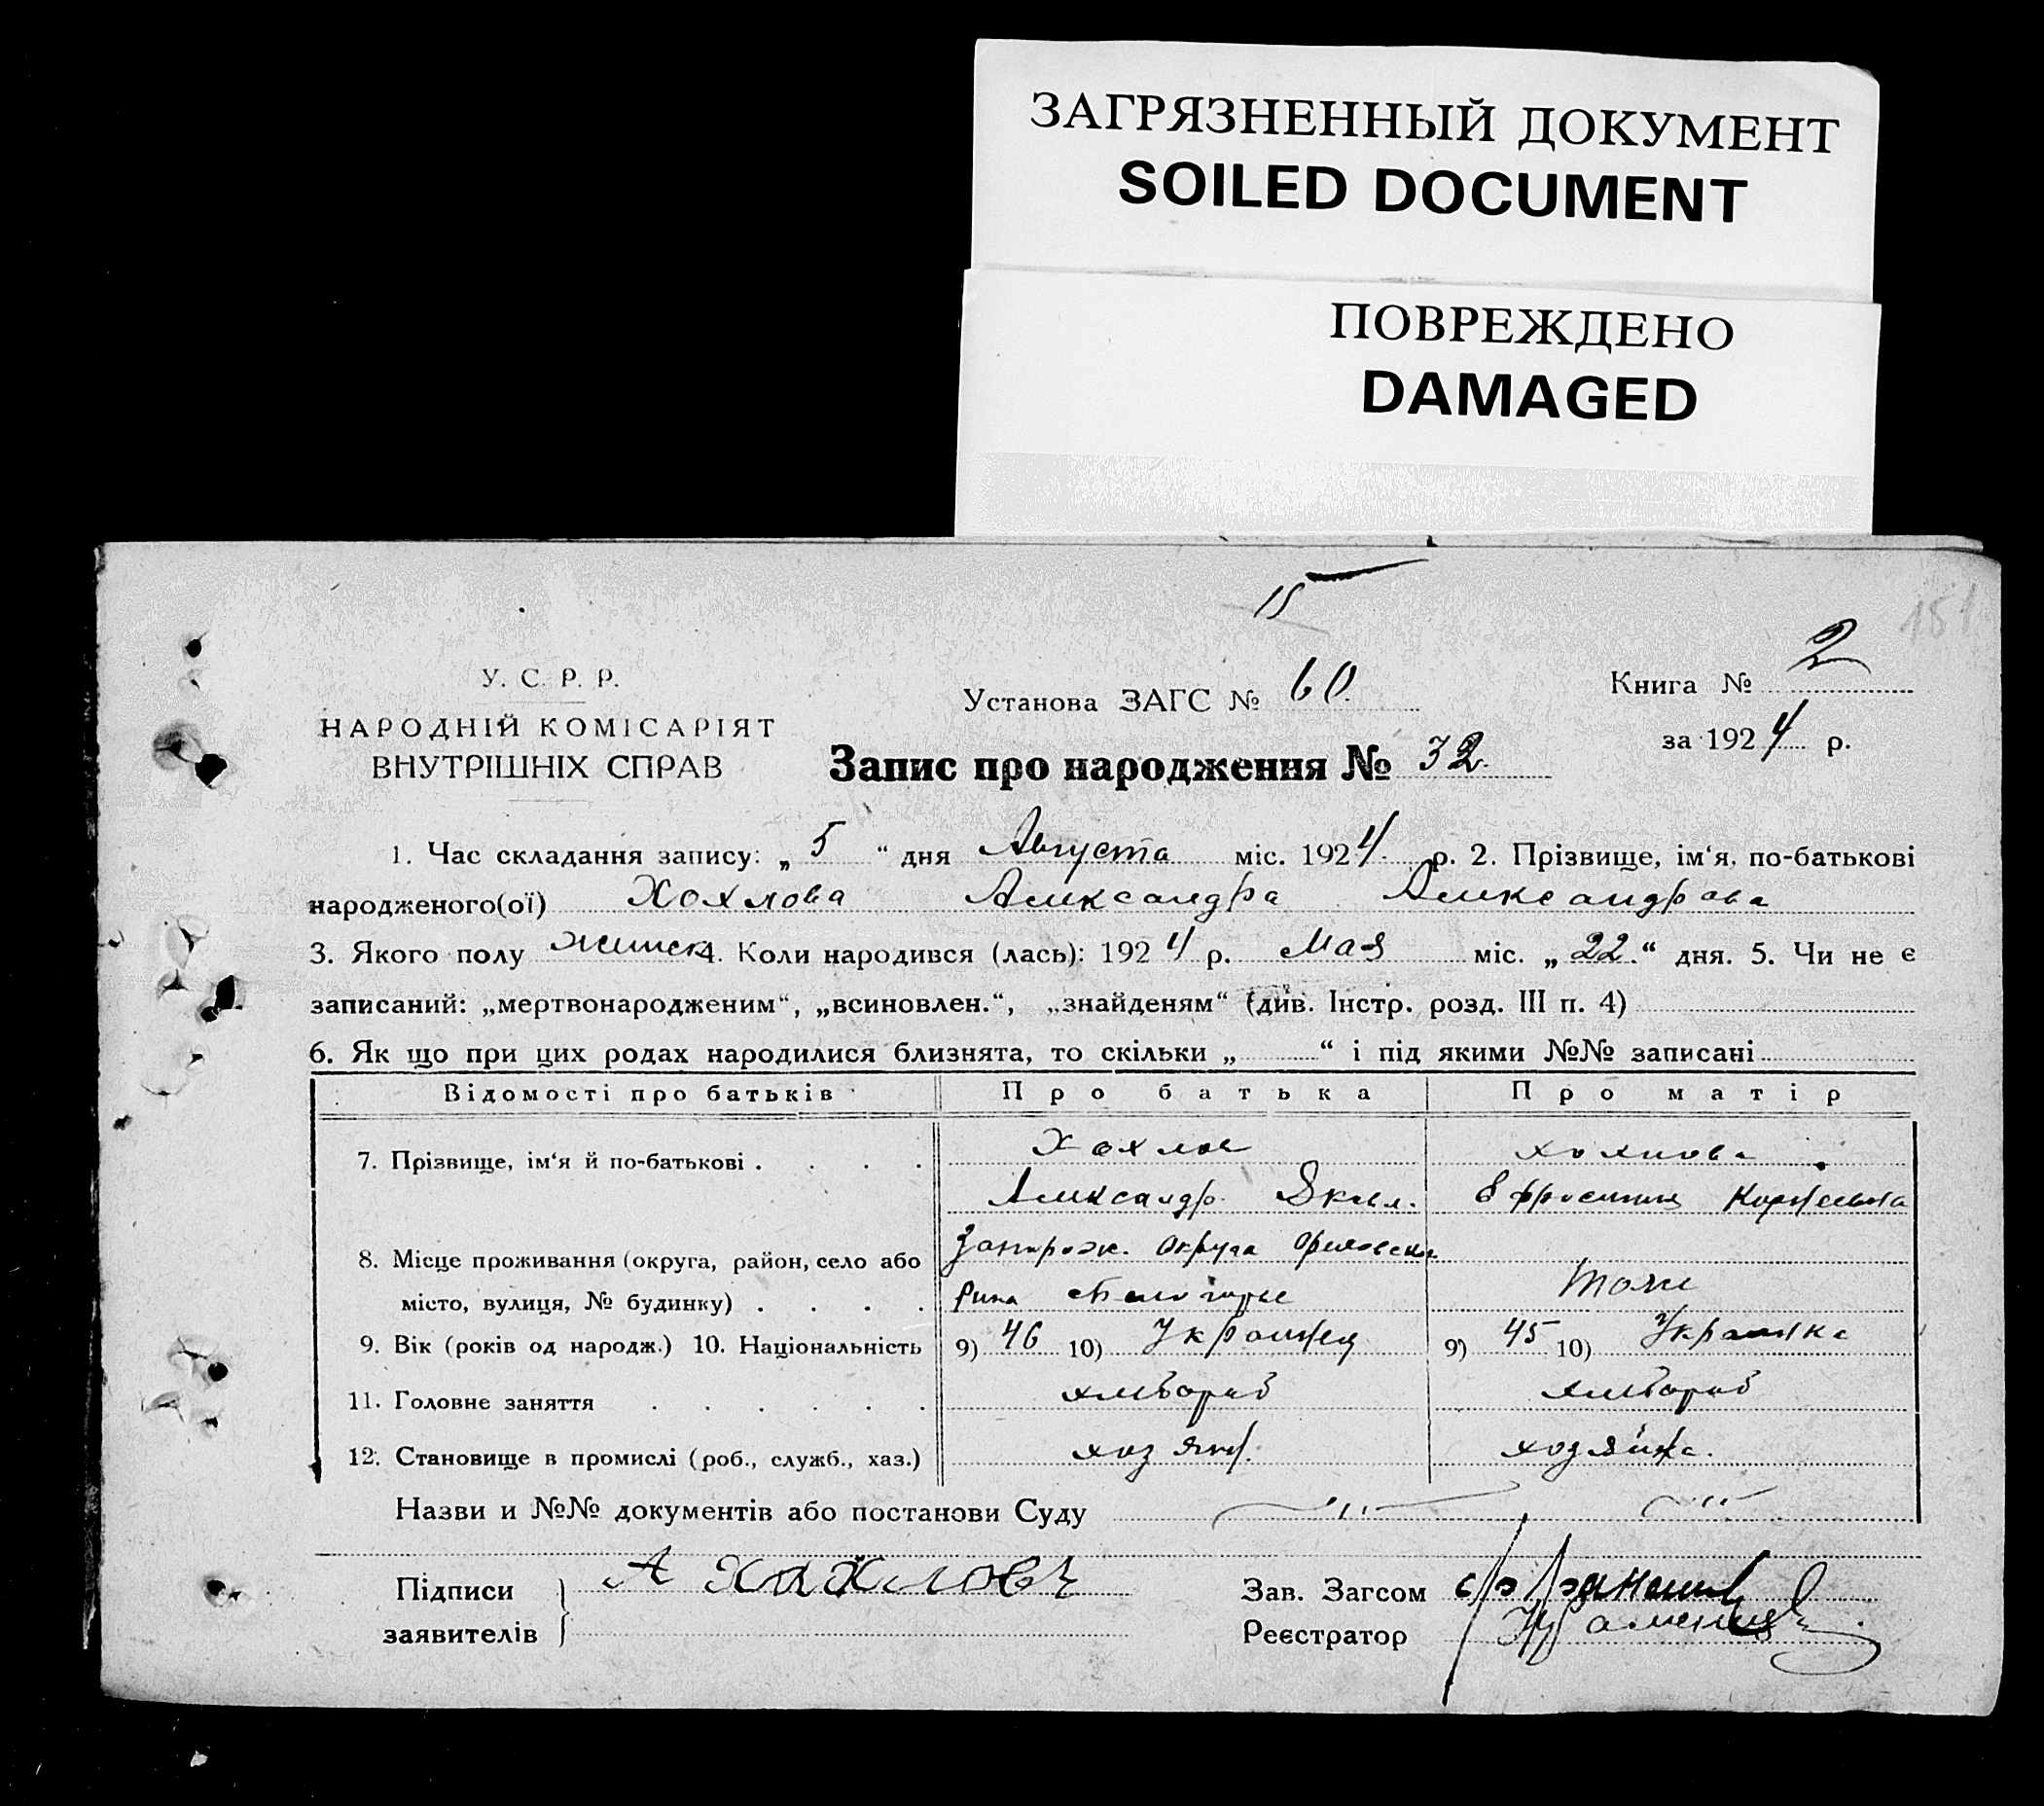 ЗАГРЯЗНЕННЫЙ ДОКУМЕНТ
SOILED DOCUMENT
ПОВРЕЖДЕНО
DAMAGED
15
151
У. С. Р. Р.
НАРОДНІЙ КОМІСАРІЯТ
ВНУТРІШНІХ СПРАВ
Установа ЗАГС № 60.
Книга № 2
за 1924 р.
Запис про народження № 32.
1. Час складання запису: „ 5 “ дня Августа міс. 1924. р. 2. Прізвище, ім‘я, по-батькові
народженого(ої) Хохлова Александра Александрова
3. Якого полу женск 4. Коли народився (лась): 1924 р. Мая міс. „ 22.“ дня. 5. Чи не є
записаний: „мертвонародженим“, „всиновлен.“, „знайденям“ (див. Інстр. розд. III п. 4)
6. Як що при цих родах народилися близнята, то скільки „ “ і під якими №№ записані
Відомості про батьків Про батька Про матір
7. Прізвище, ім‘я й по-батькові . . . . Хохлов Хохлова
Александр Ефросиния Корнеевна
8. Місце проживання (округа, район, село або Запорож. округа Ореховска
місто, вулиця, № будинку) . . . . Белогорье Тоже
9. Вік (років од народж.) 10. Національність 9) 46 10) Украинец 9) 45 10) Украинка
11. Головне заняття . . . . . . хлебороб хлебороб
12. Становище в промислі (роб., служб., хаз.) хозяин. хозяйка.
Назви и №№ документів або постанови Суду
Підписи А Хахловъ Зав. Загсом
заявителів Реєстратор